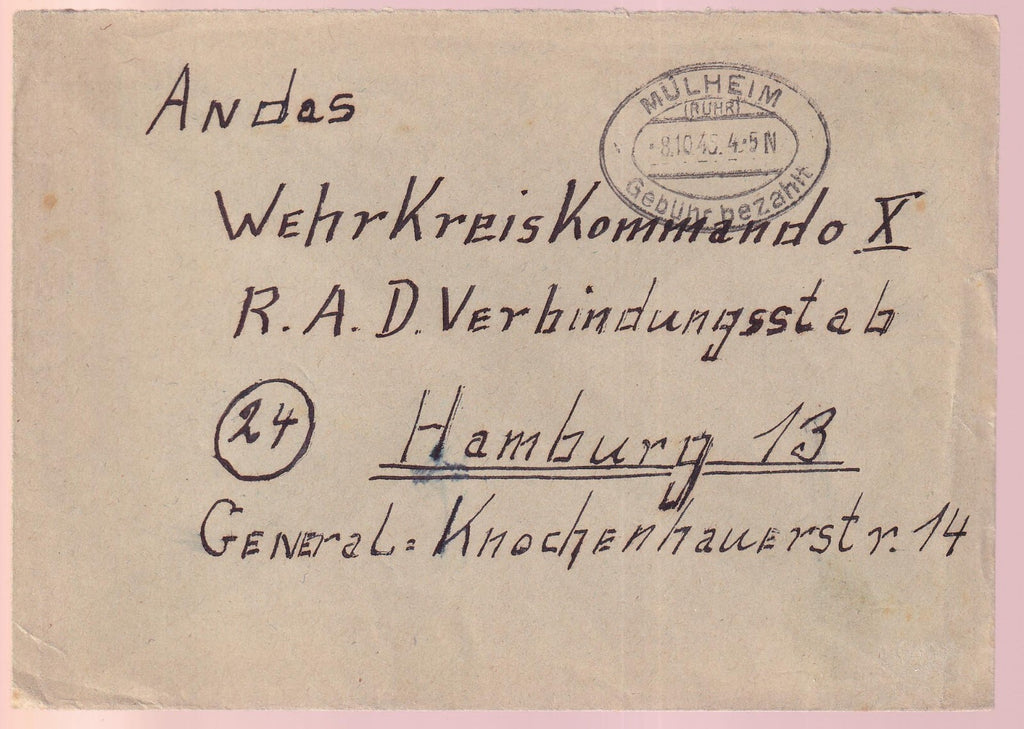 An das
MÜLHEIM
(RUHR)
-8.10.45. 4-5 N
Gebühr bezahlt
Wehrkreiskommando X
R.A.D. Verbindungsstab
24 Hamburg 13
General-Knochenhauerstr. 14